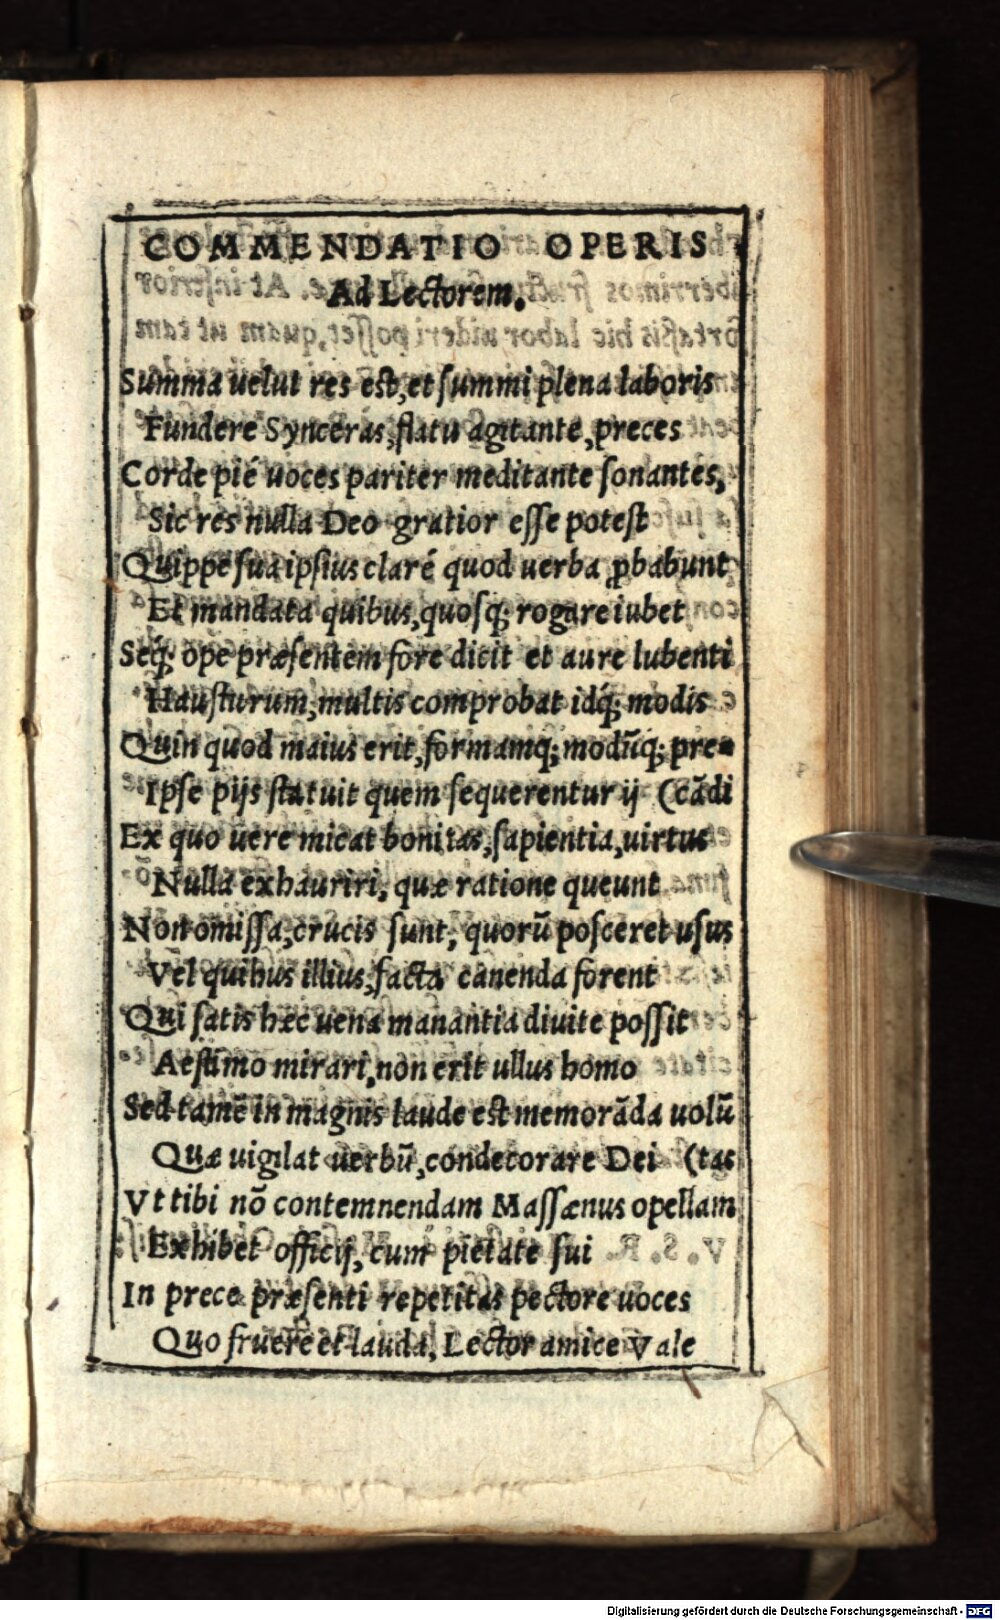 COMMENDATIO OPERIS
Ad Lectorem.
Summa uelut res est, et summi plena laboris
Fundere Synceras, flatu agitante, preces
Corde pié uoces pariter meditante sonantes,
Sic res nulla Deo gratior esse potest
Quippe sua ipsius claré quod uerba ꝓbabunt
Et mandata quibus, quosq; rogare iubet
Seq́; ope præsentem fore dicit et aure lubenti
Hausturum, multis comprobat idq́; modis
Quin quod maius erit, formamq; modũq; pre-
Ipse pijs statuit quem sequerentur ij (cãdi
Ex quo uere micat bonitas, sapientia, uirtus
Nulla exhauriri, quæ ratione queunt
Non omissa, crucis sunt, quorũ posceret usus
Vel quibus illius, facta canenda forent
Qui satis hæc uena manantia diuite possit
Aestimo mirari, non erit ullus homo
Sed tamẽ in magnis laude est memorãda uolũ
Quæ uigilat uerbũ, condecorare Dei (tas
Vt tibi nõ contemnendam Massænus opellam
Exhibet officij, cum pietate sui
In prece præsenti repetitas pectore uoces
Quo fruere et lauda, Lector amice Vale
Digitalisierung gefördert durch die Deutsche Forschungsgemeinschaft - DFG